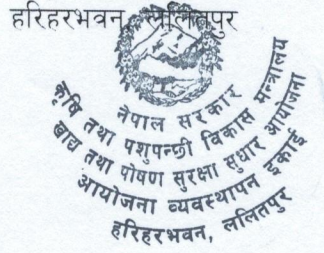 हरिहरभवन, ललितपुर
नेपाल सरकार
कृषि तथा पशुपन्छी विकास मन्त्रालय
खाद्य तथा पोषण सुरक्षा सुधार आयोजना
आयोजना व्यवस्थापन इकाई
हरिहरभवन, ललितपुर